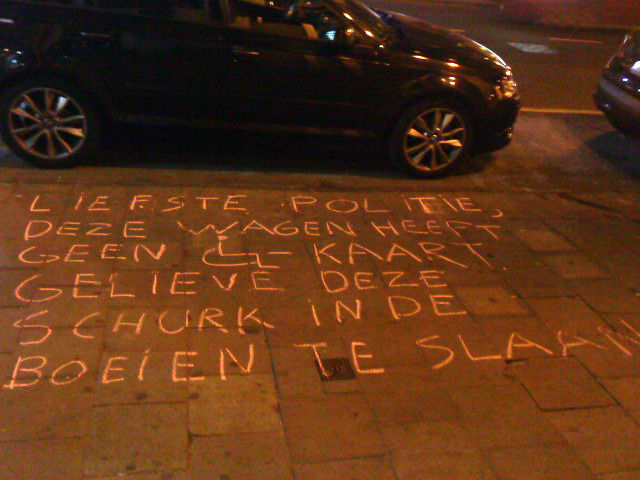 LIEFSTE POLITIE,
DEZE WAGEN HEEFT
GEEN ♿ KAART.
GELIEVE DEZE
SCHURK IN DE
BOEIEN TE SLAAN